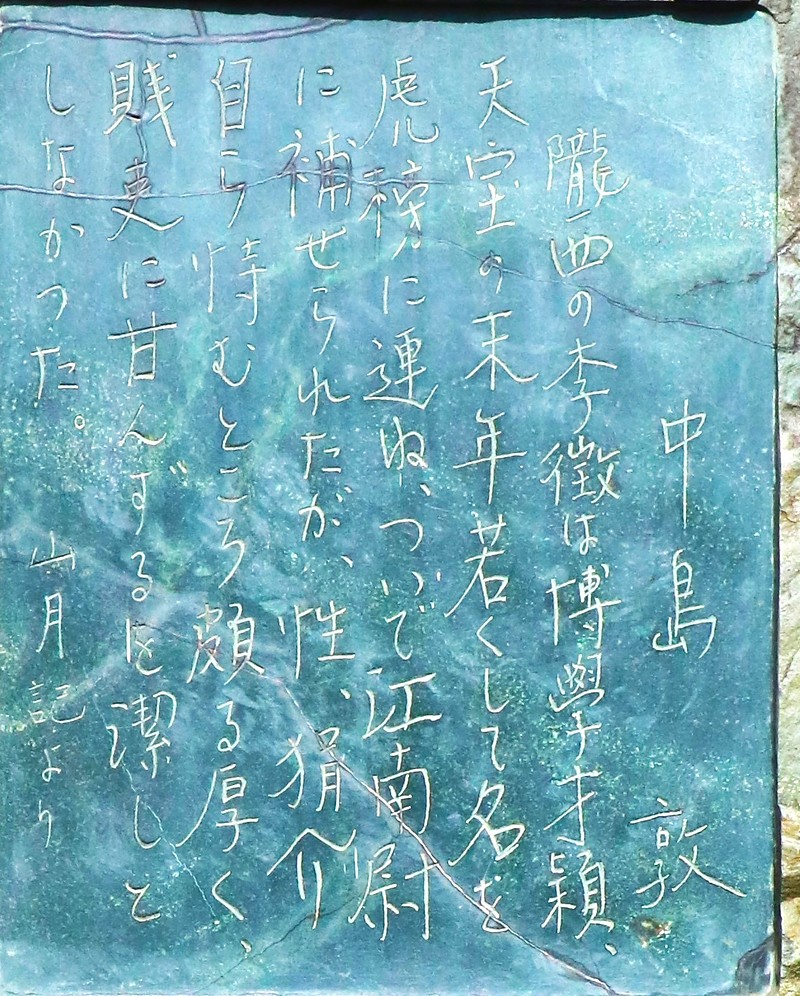 中島 敦
隴西の李徴は博學才穎、
天宝の末年若くして名を
虎榜に連ね、ついで江南尉
に補せられたが、性、狷介
自ら恃むところ頗る厚く、
賎吏に甘んずるを潔しと
しなかつた。 山月記より